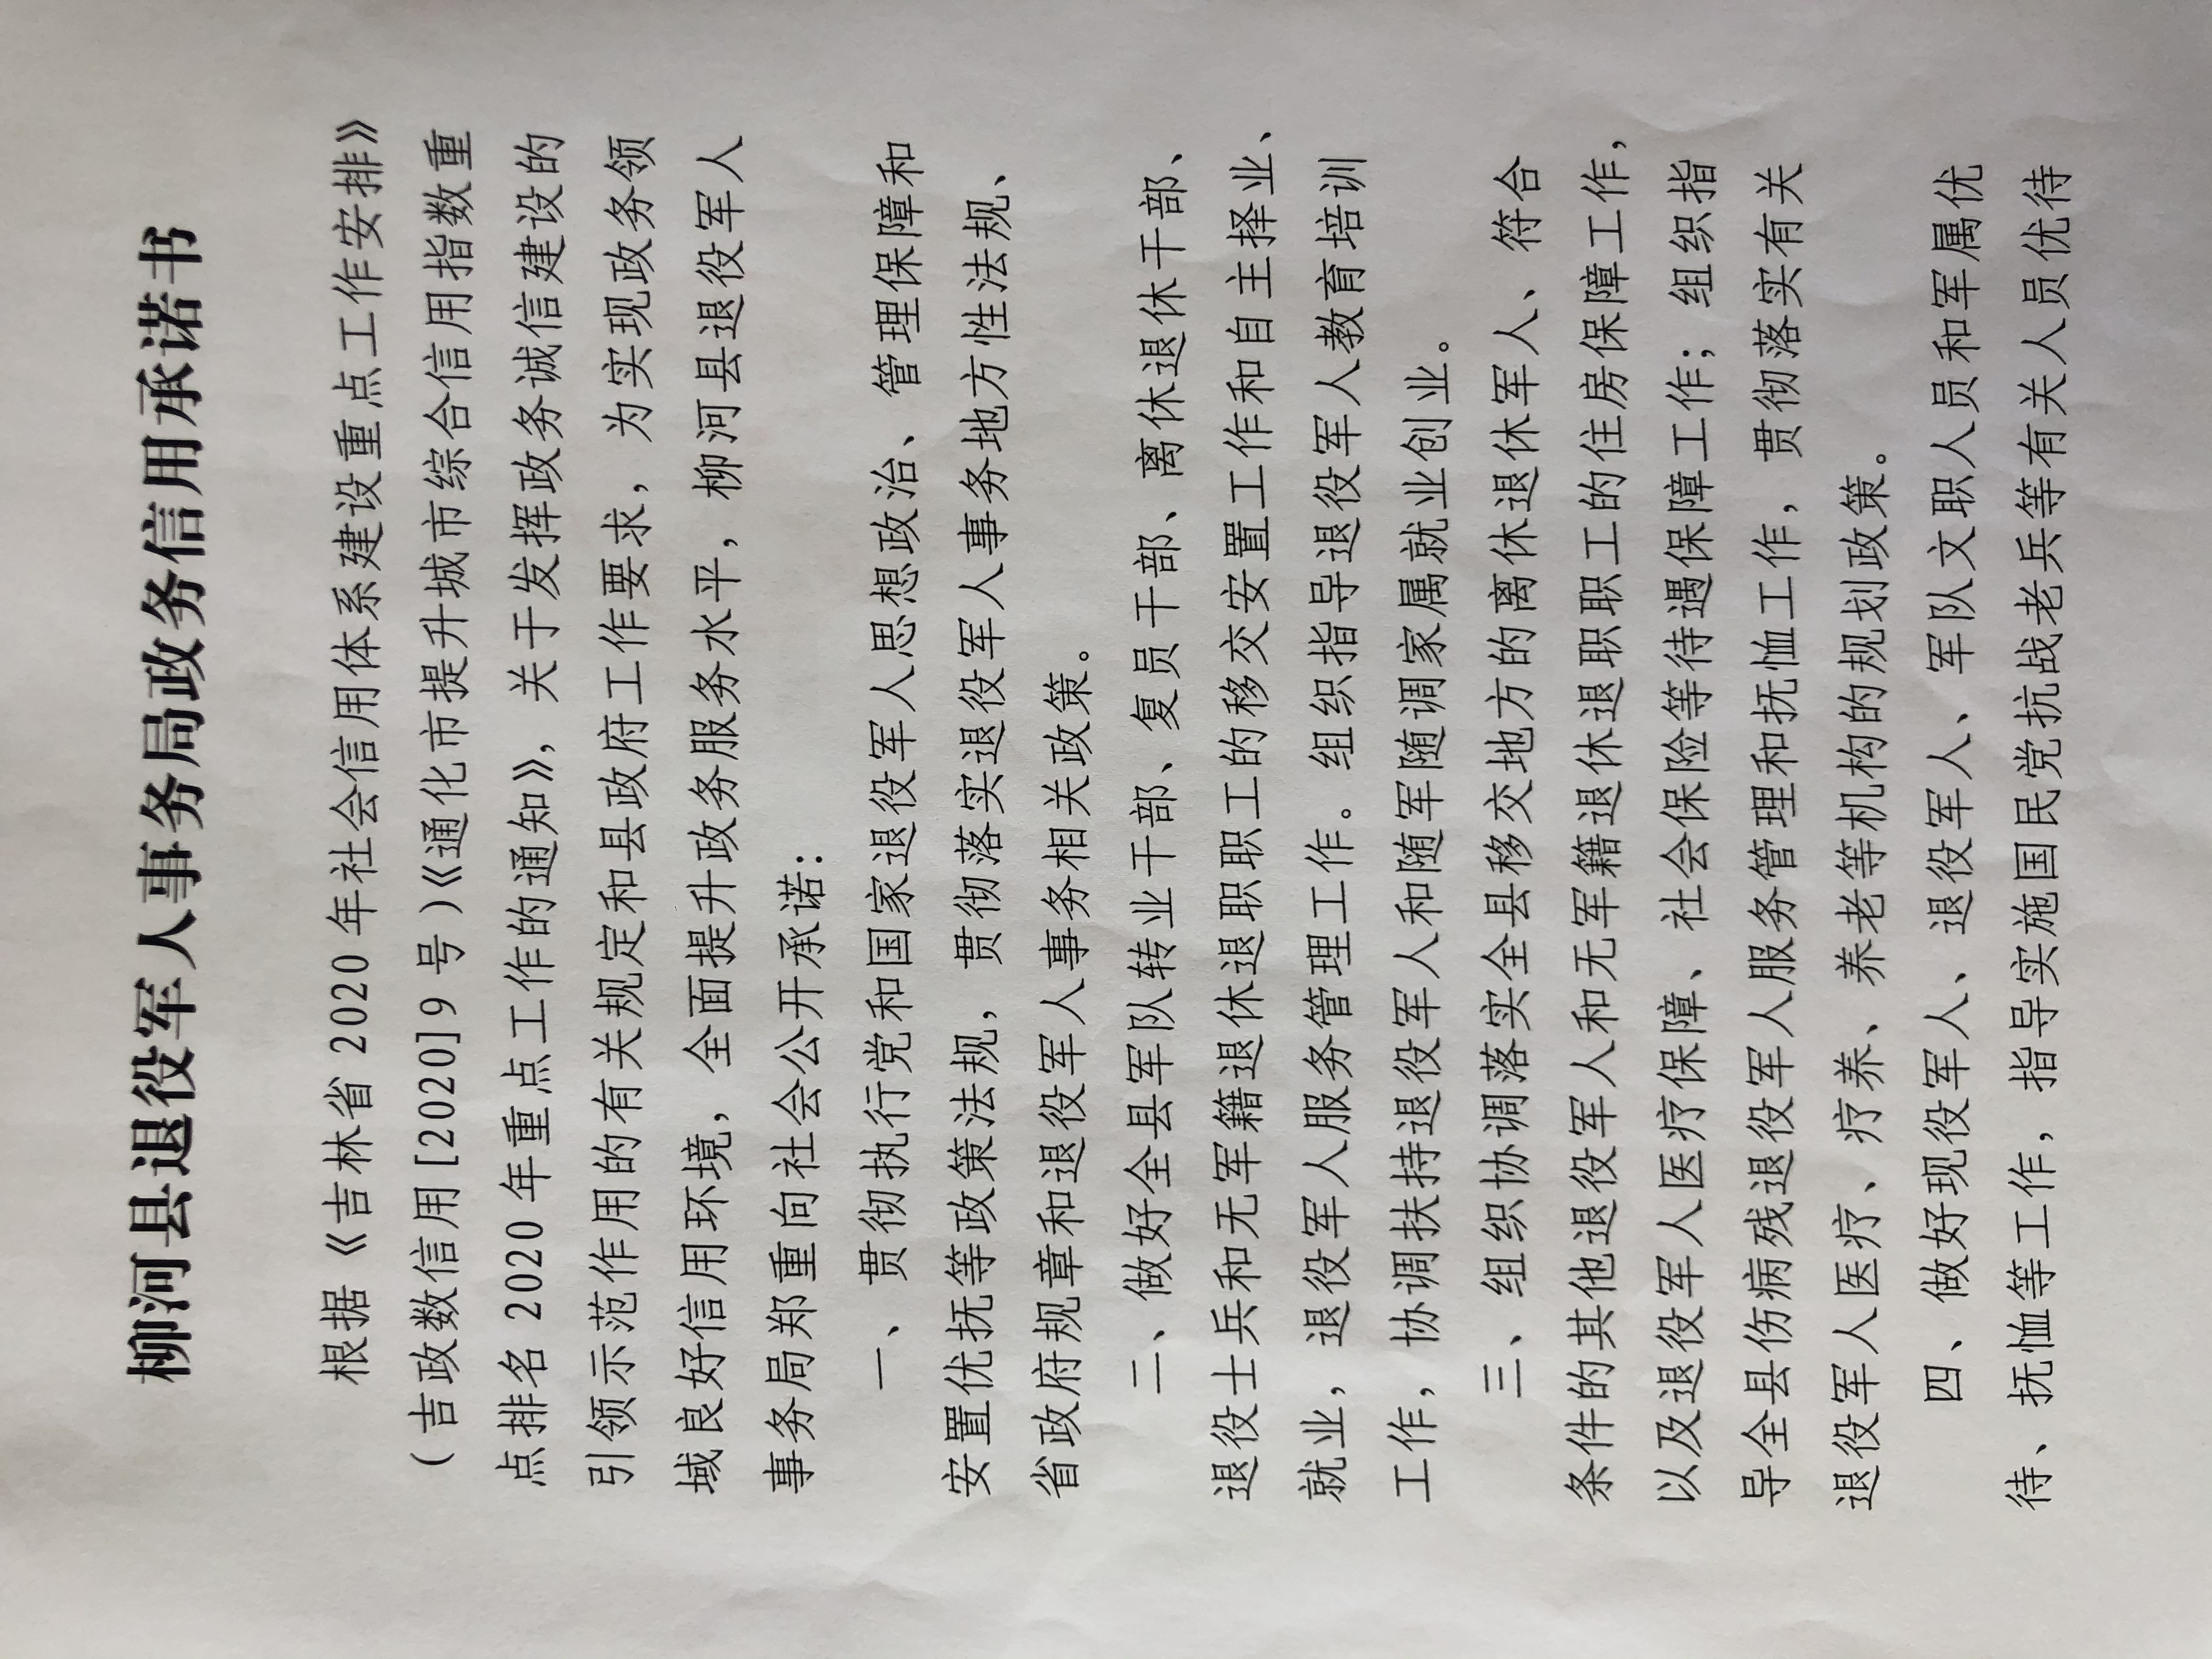 柳河县退役军人事务局政务信用承诺书
根据《吉林省 2020 年社会信用体系建设重点工作安排》
（吉政数信用[2020]9 号）《通化市提升城市综合信用指数重
点排名 2020 年重点工作的通知》，关于发挥政务诚信建设的
引领示范作用的有关规定和县政府工作要求，为实现政务领
域良好信用环境，全面提升政务服务水平，柳河县退役军人
事务局郑重向社会公开承诺：
一、贯彻执行党和国家退役军人思想政治、管理保障和
安置优抚等政策法规，贯彻落实退役军人事务地方性法规、
省政府规章和退役军人事务相关政策。
二、做好全县军队转业干部、复员干部、离休退休干部、
退役士兵和无军籍退休退职职工的移交安置工作和自主择业、
就业，退役军人服务管理工作。组织指导退役军人教育培训
工作，协调扶持退役军人和随军随调家属就业创业。
三、组织协调落实全县移交地方的离休退休军人、符合
条件的其他退役军人和无军籍退休退职职工的住房保障工作，
以及退役军人医疗保障、社会保险等待遇保障工作；组织指
导全县伤病残退役军人服务管理和抚恤工作，贯彻落实有关
退役军人医疗、疗养、养老等机构的规划政策。
四、做好现役军人、退役军人、军队文职人员和军属优
待、抚恤等工作，指导实施国民党抗战老兵等有关人员优待